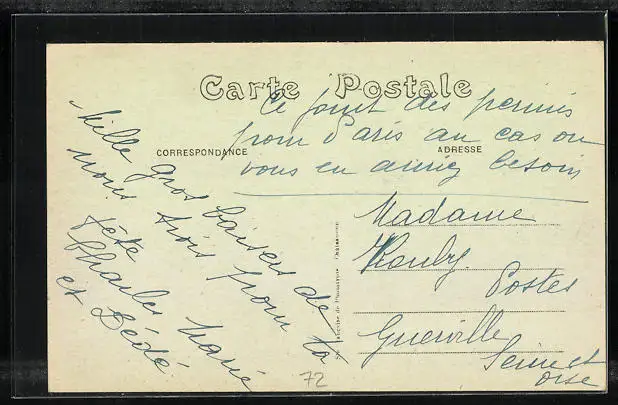 Carte Postale
CORRESPONDANCE
ADRESSE
Ce joint des permis
pour Paris au cas ou
vous en auriez besoin
Mille gros baisers de
nous trois pour ta
fête
Charles Marie
et Dédé
Madame
Rouby
Postes
Guerville
Seine et
Oise
72